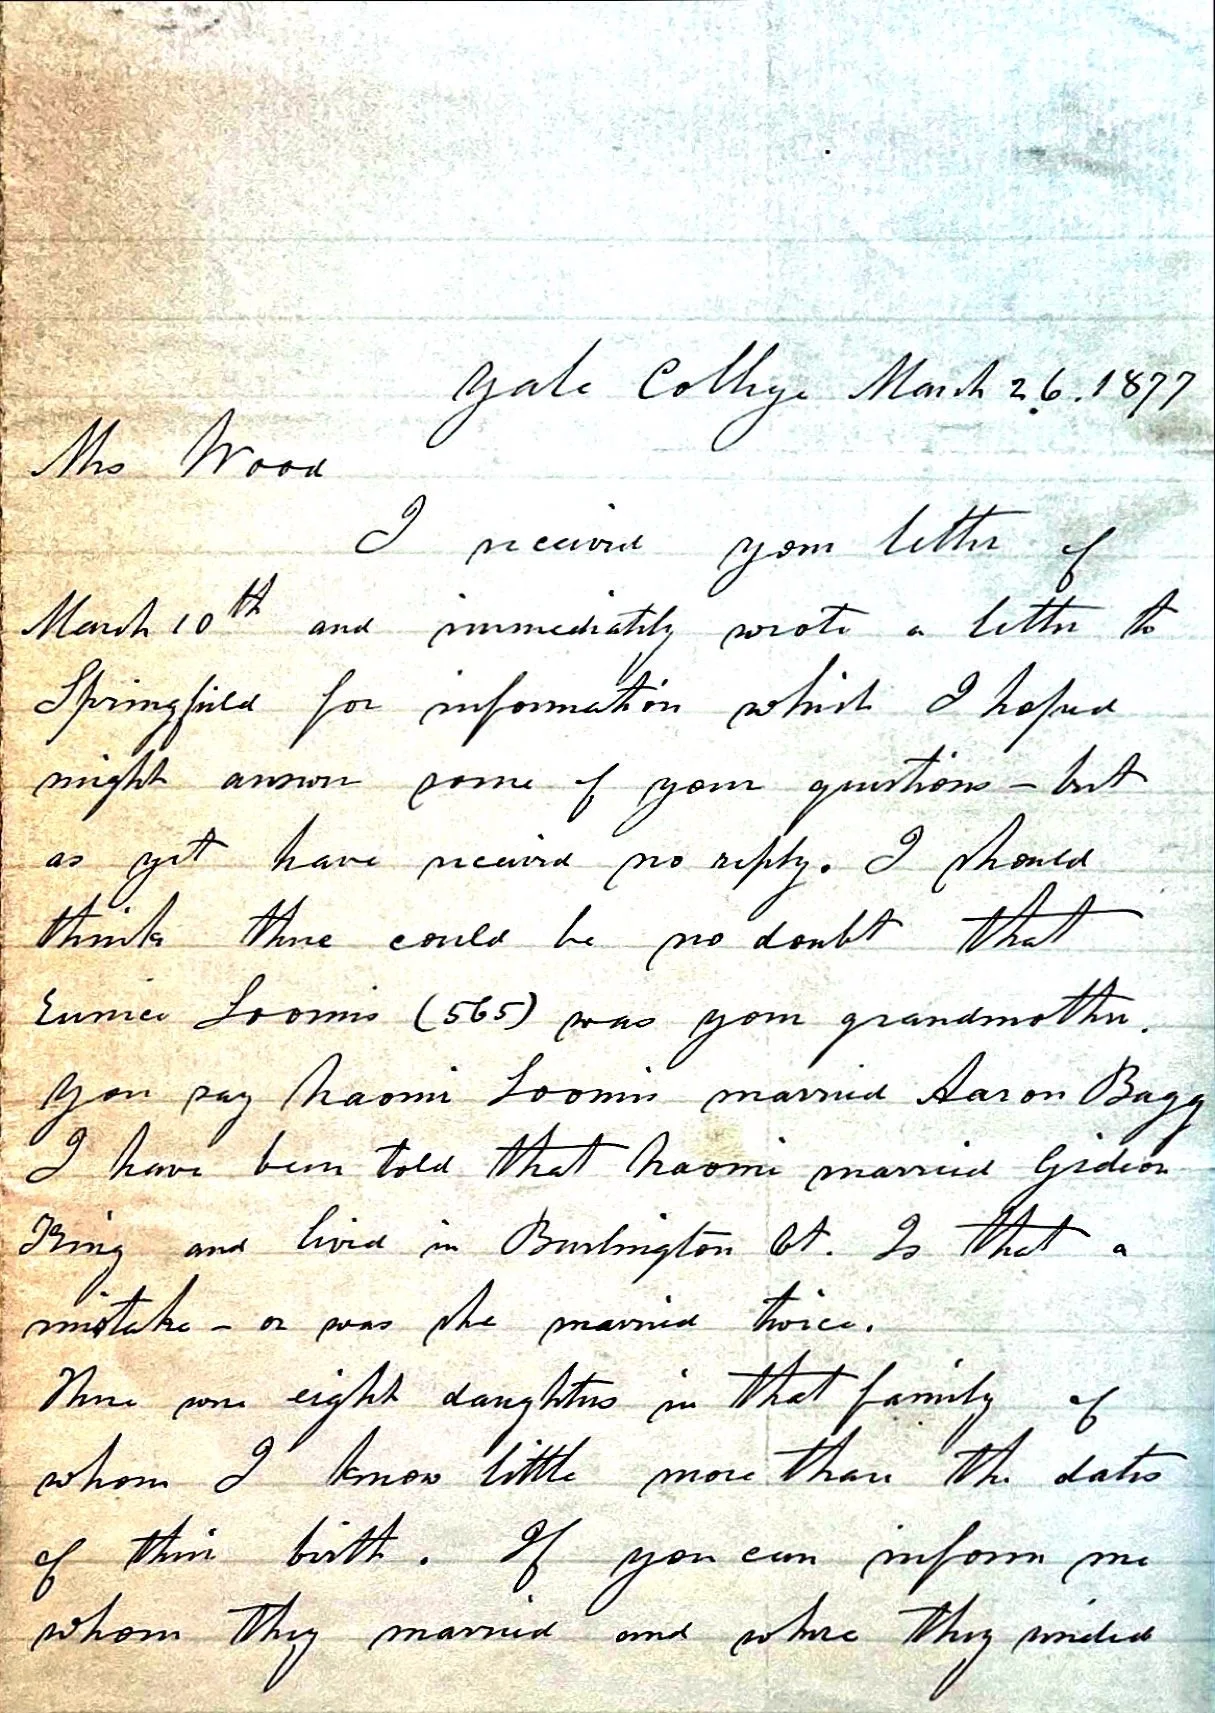 Yale College March 26. 1877
Mrs Wood
I received your letter of
March 10th and immediately wrote a letter to
Springfield for information which I hoped
might answer some of your questions - but
as yet have received no reply. I should
think there could be no doubt that
Eunice Loomis (565) was your grandmother.
You say Naomi Loomis married Aaron Bagg
I have been told that Naomi married Gideon
King and lived in Burlington Vt. Is that a
mistake - or was she married twice.
There were eight daughters in that family of
whom I know little more than the dates
of their birth. If you can inform me
whom they married and where they resided